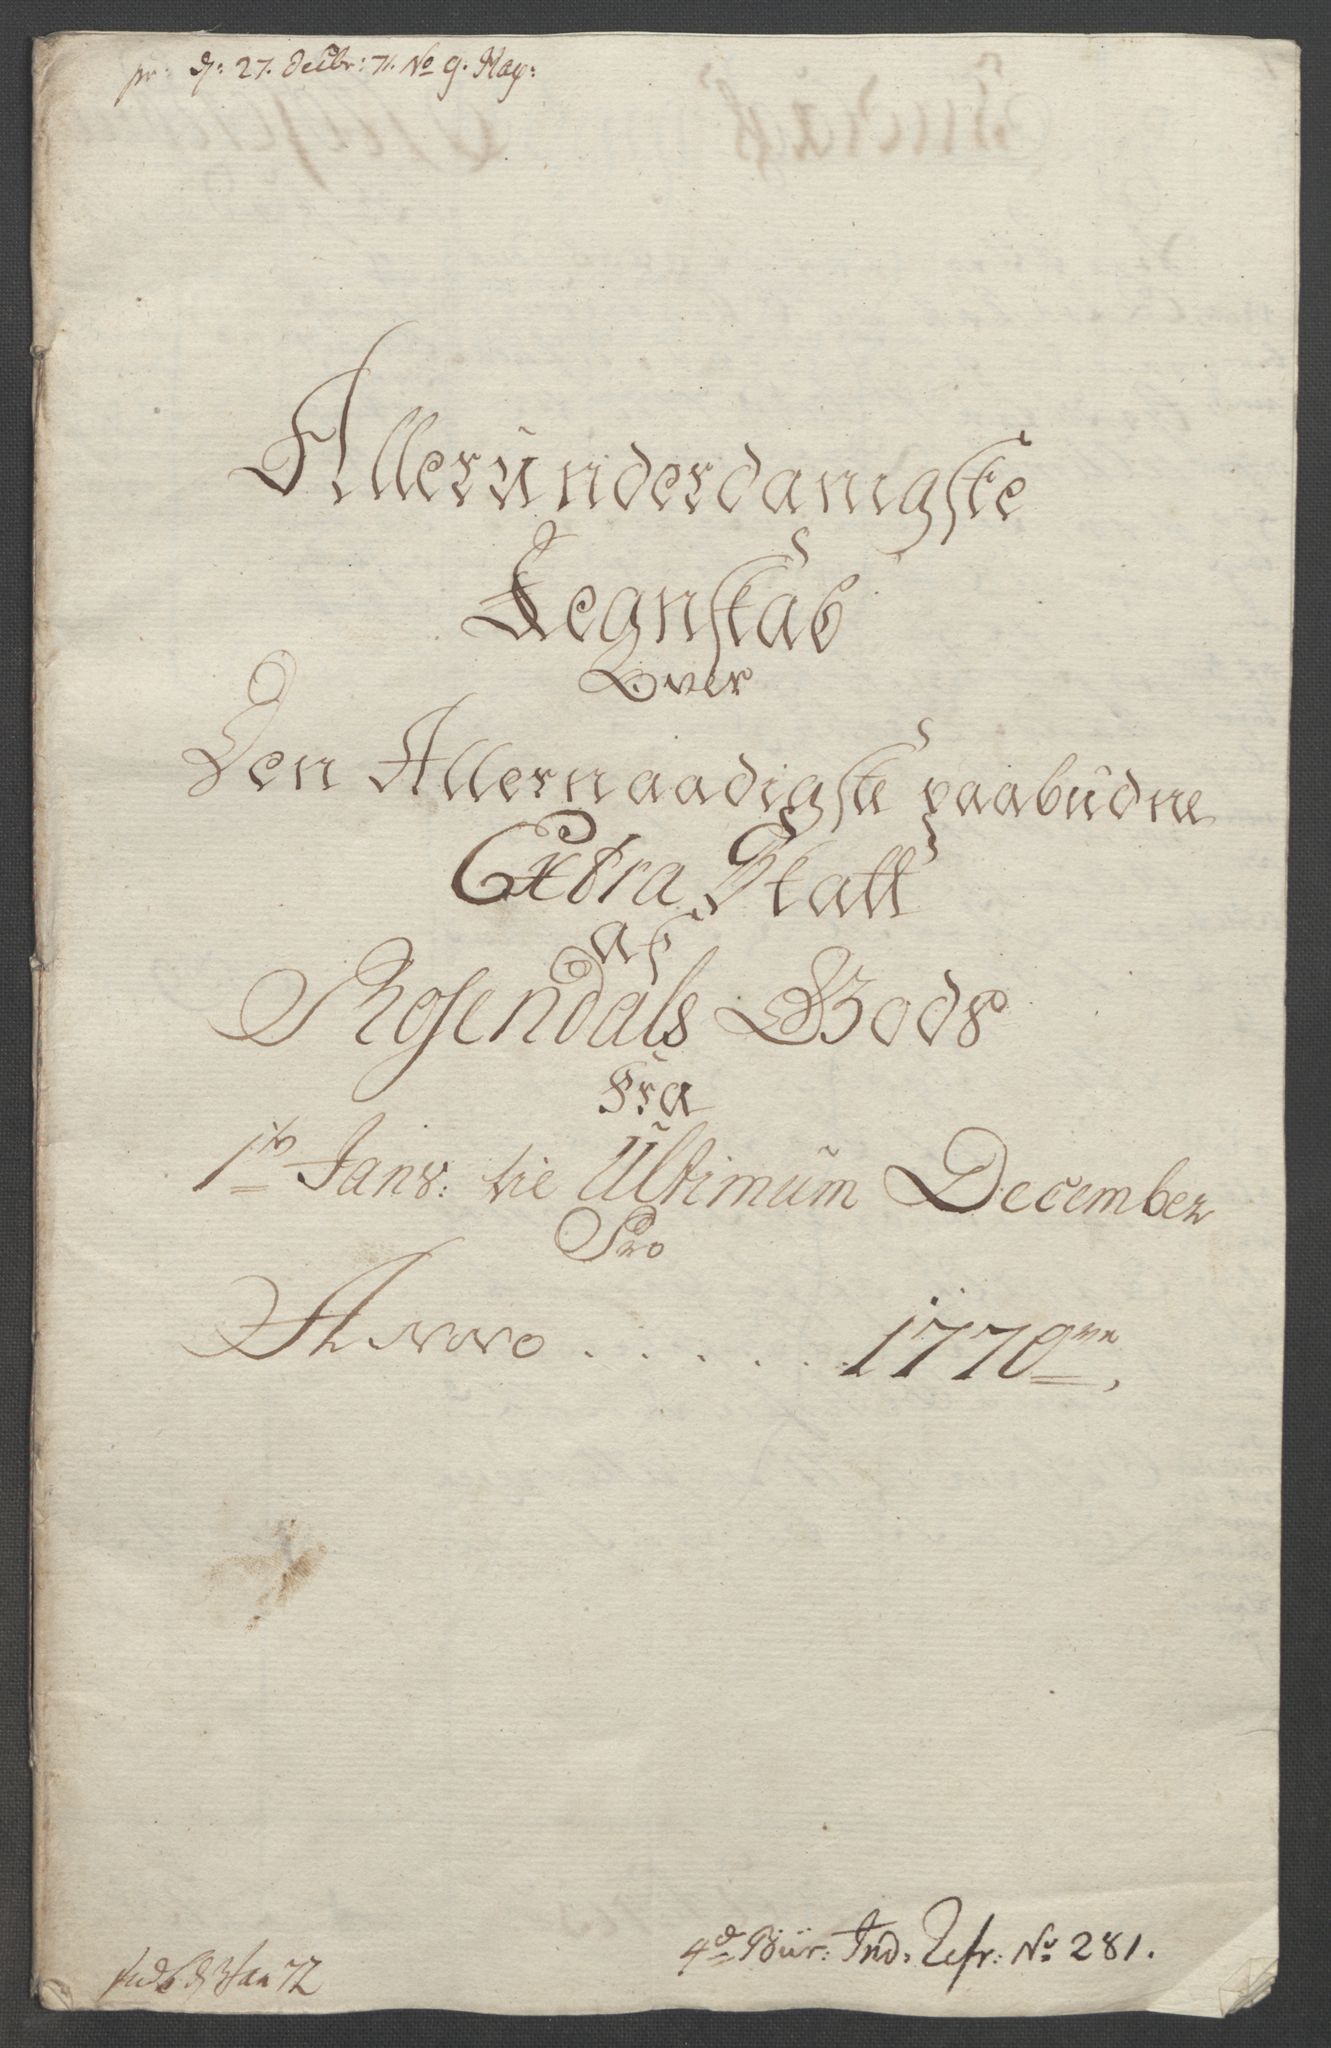 pr: d: 27. Decbr: 71. No 9. Kay:
Allerunderdanigste
Regnskab
Over
Den Allernaadigste paabudne
Extra Skatt
af
Rosendals Gods
Fra
1te Janr: til Ultimum December
Pro
Anno . . . . . . . 1770ve,
4d Bur: Ind: Refr: No 281.
Jan 72